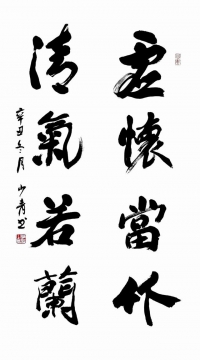 虚懷當竹
清氣若蘭
辛丑冬月少青书